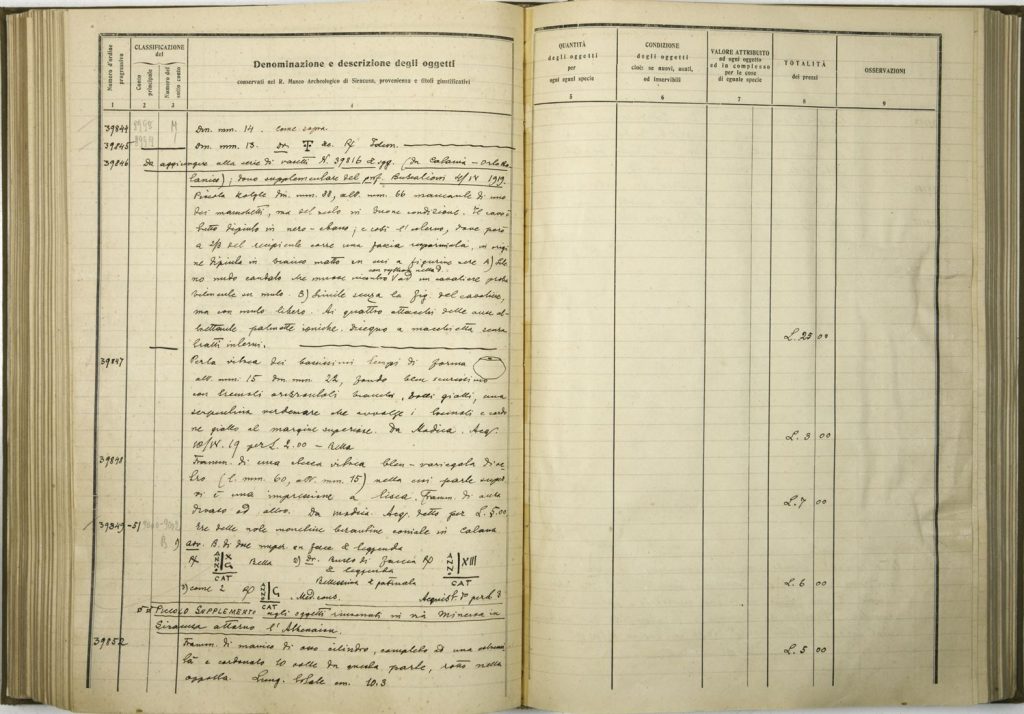 Numero d'ordine progressivo
CLASSIFICAZIONE
del
Conto principale
Numero del sotto conto
Denominazione e descrizione degli oggetti
conservati nel R. Museo Archeologico di Siracusa, provenienza e titoli giustificativi
1 2 3 4
39844 M Dm. mm. 14. Come sopra
39845 Dm. mm. 13. Dr. T
39846 Da aggiungere alla serie di vasetti N. 39816 e sgg. (Da Catania -
); dono supplementare del prof. Buscalioni 4/IV 1919.
Piccola Kotyle dm. mm. 88, alt. mm. 66 mancante di uno
dei manichetti, ma del resto in buone condizioni. Il cavo è
tutto dipinto in nero-ebano; e così l'esterno, dove però
a 2/3 del recipiente corre una fascia risparmiata, in origi
ne dipinta in bianco matto su cui a figurine nere A) Sile
no nudo caudato che muove incontro ad un cavaliere
su mulo. B) Simile senza la fig. del cavaliere,
ma con mulo libero. Ai quattro attacchi delle anse al
trettante palmette ioniche. Disegno a macchietta senza
tratti interni.
39847 Perla vitrea dei bassissimi tempi di forma
alt. mm. 15 dm. mm. 22, fondo bleu scurissimo
con orizzontali bianchi, gialli, una
serpentina verdemare che avvolge i e cordo
ne giallo al margine superiore. Da Modica. Acq.
10/IV.19 per L. 2.00 - Bella
39848 Framm. di una vitrea bleu-variegata di ve
tro (l. mm. 60, alt. mm. 15) nella cui parte super
vi è una impressione a lisca. Framm. di
ad altro. Da Modica. Acq. detto per L. 5.00
39849-51 B Tre delle note monetine bizantine coniate in Catana
1) av. B. di due imper. in face e leggenda
ANNO X G CAT Bella 2) Dr. Busto di faccia ANNO XIII CAT
e leggenda
Bellissima e patinata
3) come 2 ANNO G CAT. Mediocre. Acquist. per L. 3
PICCOLO SUPPLEMENTO agli oggetti rinvenuti in via Minerva in
Siracusa attorno l'Athenaion.
39852 Framm. di manico di osso cilindro, completo ad una estremi
tà e cordonato 10 volte da questa parte, rotto nella
opposta. Lung. totale cm. 10.3
QUANTITÀ
degli oggetti
per
ogni ogni specie
5
CONDIZIONE
degli oggetti
cioè: se nuovi, usati,
od inservibili
6
VALORE ATTRIBUITO
ad ogni oggetto
ed in complesso
per le cose
di eguale specie
7
TOTALITÀ
dei prezzi
8
OSSERVAZIONI
9
L. 25 00
L. 3 00
L. 7 00
L. 6 00
L. 5 00